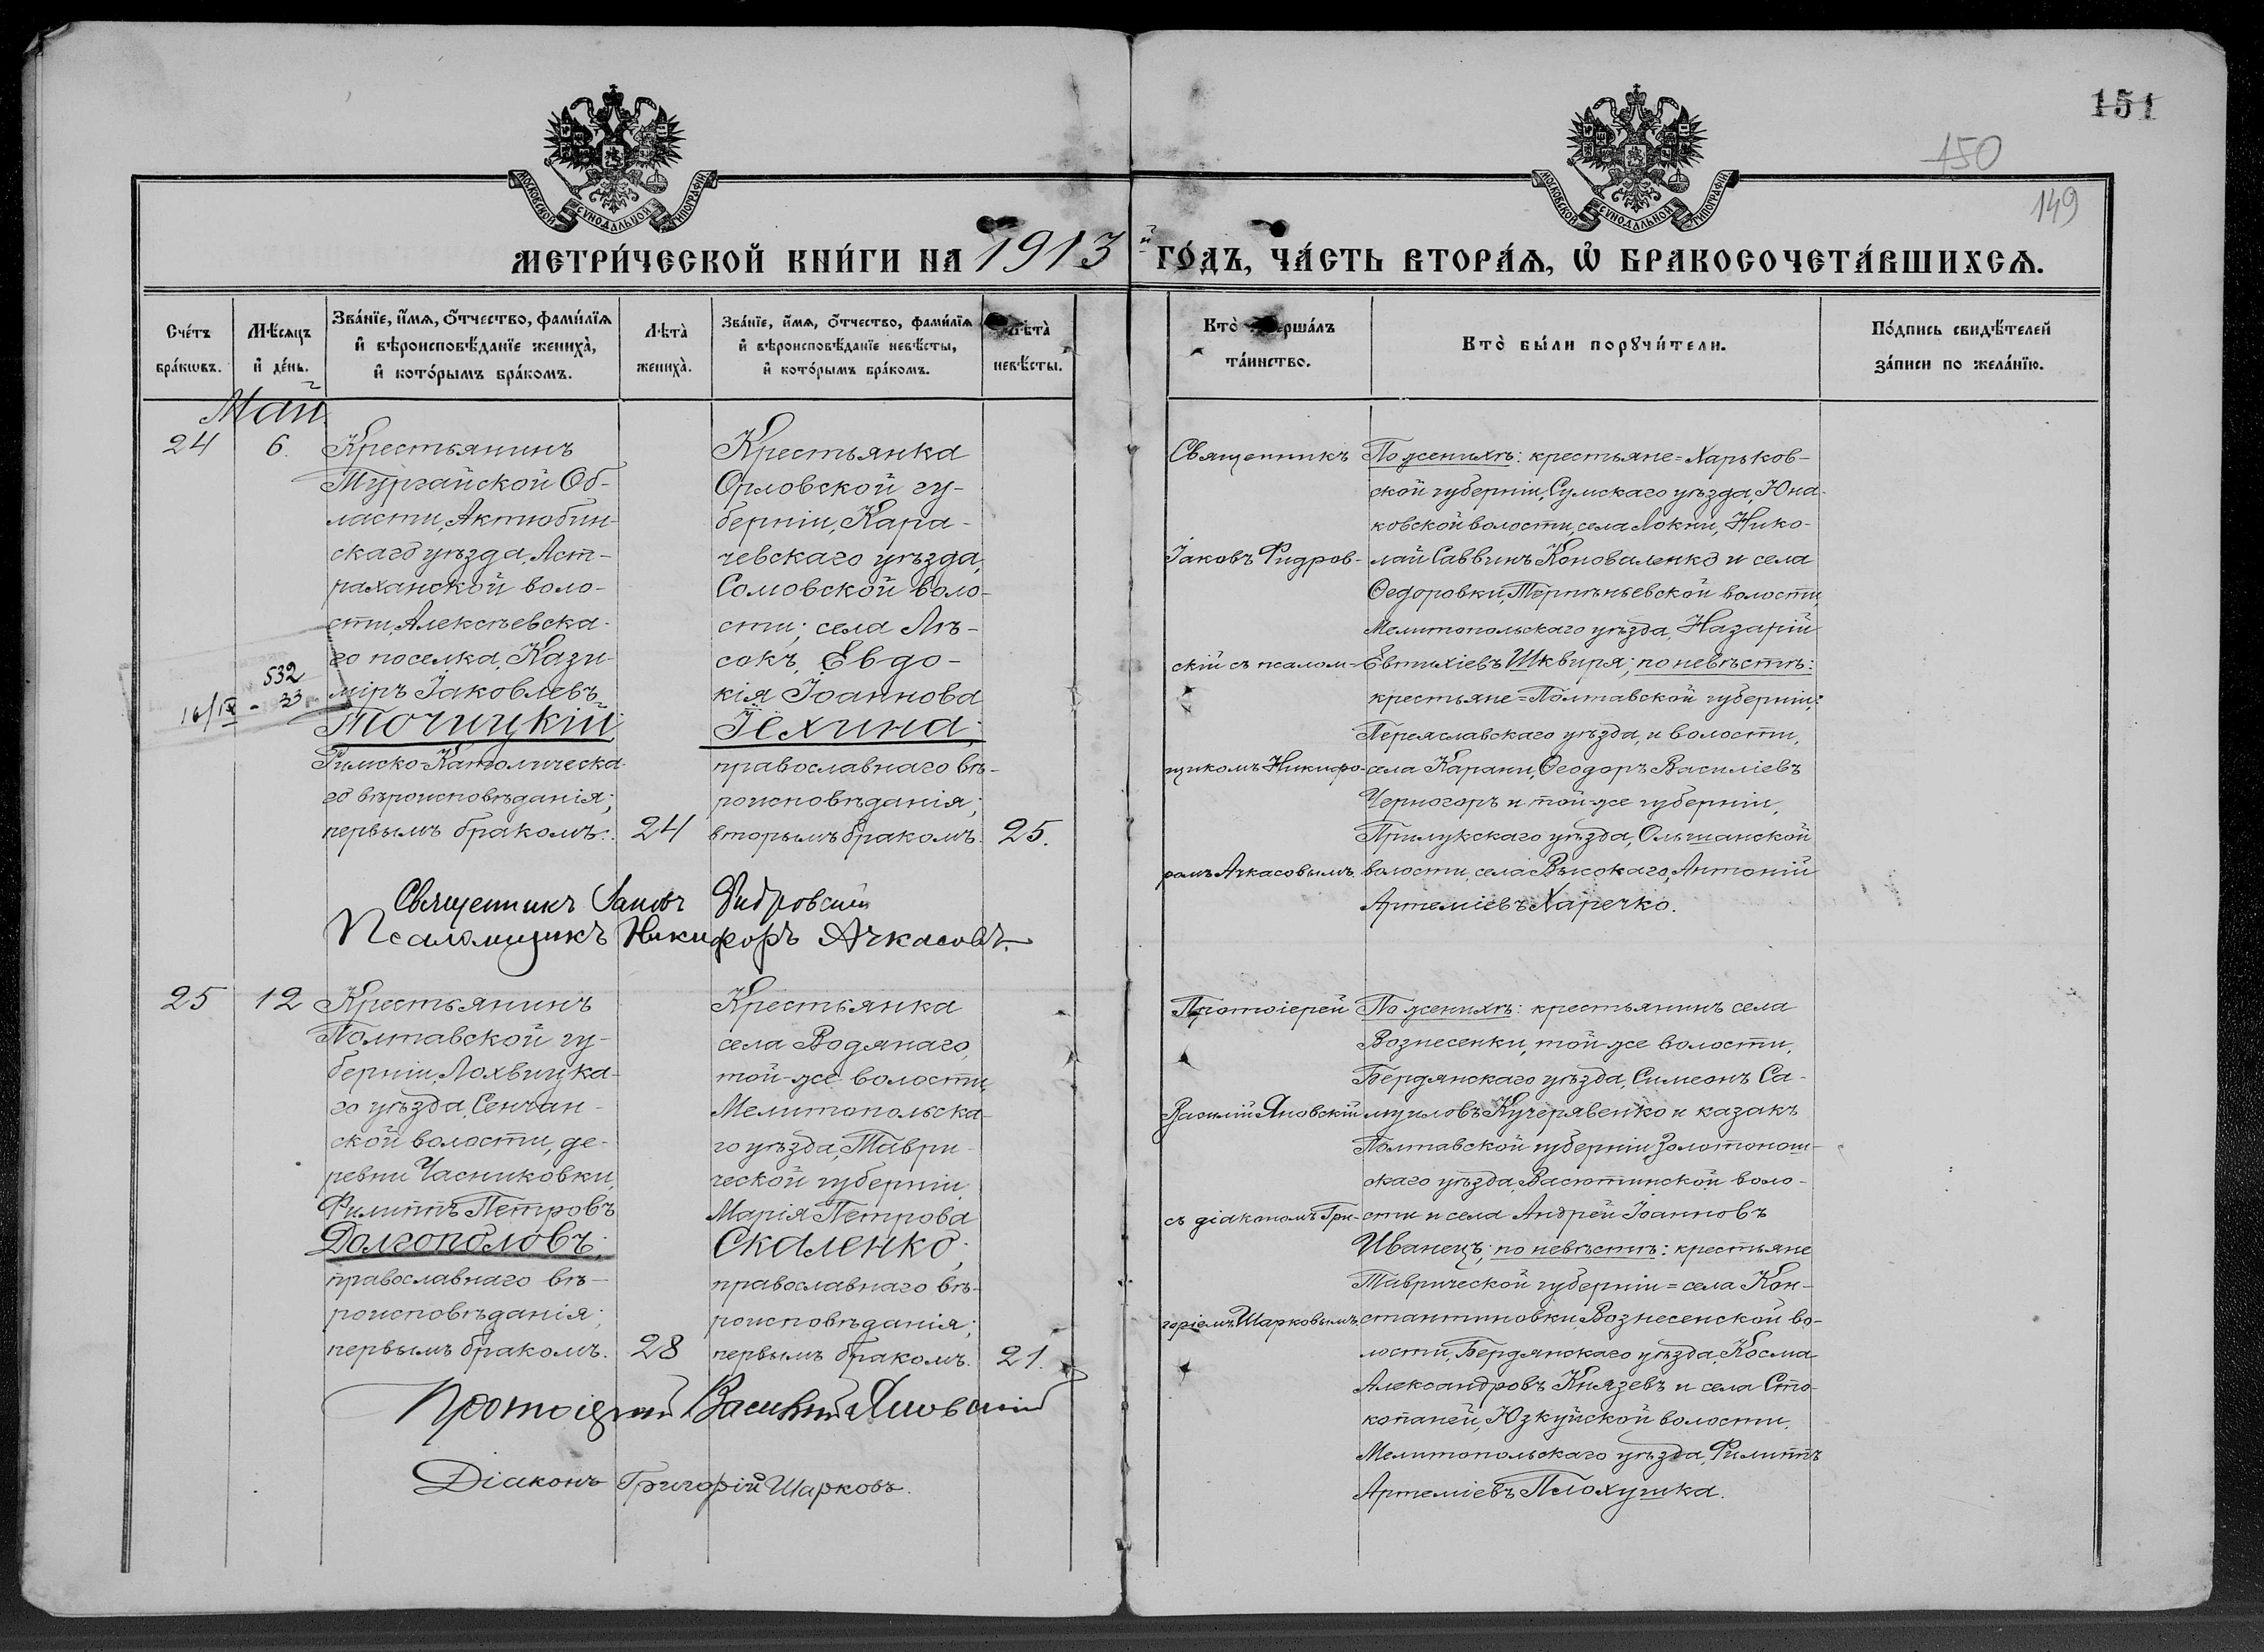 151
150
149
МОСКОВСКОЙ СУНОДАЛЬНОЙ ТИПОГРАФІИ
МОСКОВСКОЙ СУНОДАЛЬНОЙ ТИПОГРАФІИ
МЕТРИ́ЧЕСКОЙ КНИ́ГИ НА 1913 й ГО́ДЪ, ЧА́СТЬ ВТОРА́Ѧ, Ѡ҆ БРАКОСОЧЕТА́ВШИХСѦ.
Сче́тъ бра́кωвъ.
Мѣ́сяцъ и҆ де́нь.
Зва́нїе, и҆́мѧ, ѻ҆́тчество, фами́лїѧ и҆ вѣроисповѣ́данїе жениха̀, и҆ кото́рымъ бра́комъ.
Лѣта̀ жениха̀.
Зва́нїе, и҆́мѧ, ѻ҆́тчество, фами́лїѧ и҆ вѣроисповѣ́данїе невѣ́сты, и҆ кото́рымъ бра́комъ.
Лѣта̀ невѣ́сты.
Кто̀ ершáлъ та́инство.
Кто̀ бы́ли порꙋчи́тели.
По́дпись свидѣ́телей за́писи по жела́нїю.
Май.
24
6.
Крестьянинъ
Тургайской Об-
ласти, Актюбин-
скаго уѣзда, Аст-
раханской воло-
сти, Алексѣевска-
го поселка, Кази-
міръ Іаковлевъ
Точицкій;
Римско-Католическа-
го вѣроисповѣданія;
первымъ бракомъ.
24
532
16/IX - 33
Крестьянка
Орловской гу-
берніи, Кара-
чевскаго уѣзда,
Сомовской воло-
сти, села Лѣ-
сокъ, Евдо-
кія Іоаннова
Іехина;
православнаго вѣ-
роисповѣданія;
вторымъ бракомъ.
25.
Священникъ Іаковъ Фидровскій
Псаломщикъ Никифоръ Ачкасовъ.
Священникъ
Іаковъ Фидров-
скій съ псалом-
щикомъ Никифо-
ромъ Ачкасовымъ.
По женихѣ: крестьяне=Харьков-
ской губерніи, Сумскаго уѣзда, Юна-
ковской волости, села Локни, Нико-
лай Саввинъ Коноваленко и села
Ѳедоровки, Терпѣньевской волости,
Мелитопольскаго уѣзда, Назарій
Евтихіевъ Шквиря; по невѣстѣ:
крестьяне=Полтавской губерніи:
Переяславскаго уѣзда, и волости,
села Карани, Ѳеодоръ Василіевъ
Черногоръ и той-же губерніи,
Прилукскаго уѣзда, Ольшанской
волости, села Высокаго, Антоній
Артеміевъ Харечко.
25
12
Крестьянинъ
Полтавской гу-
берніи, Лохвицка-
го уѣзда, Сенчан-
ской волости, де-
ревни Часниковки,
Филиппъ Петровъ
Долгополовъ;
православнаго вѣ-
роисповѣданія;
первымъ бракомъ.
28
Крестьянка
села Водянаго,
той-же волости,
Мелитопольска-
го уѣзда, Таври-
ческой губерніи,
Марія Петрова
Скаленко;
православнаго вѣ-
роисповѣданія;
первымъ бракомъ.
21.
Протоіерей Василій Яновскій
Діаконъ Григорій Шарковъ.
Протоіерей
Василій Яновскій
съ діакономъ Гри-
горіемъ Шарковымъ.
По женихѣ: крестьянинъ села
Вознесенки, той-же волости,
Бердянскаго уѣзда, Симеонъ Са-
муиловъ Кучерявенко и казакъ
Полтавской губерніи Золотонош-
скаго уѣзда, Васютинской воло-
сти и села Андрей Іоанновъ
Иванецъ; по невѣстѣ: крестьяне
Таврической губерніи=села Кон-
стантиновки, Вознесенской во-
лости, Бердянскаго уѣзда, Косма
Александровъ Князевъ и села Сто-
копаней, Юзкуйской волости,
Мелитопольскаго уѣзда, Филиппъ
Артеміевъ Плохушка.